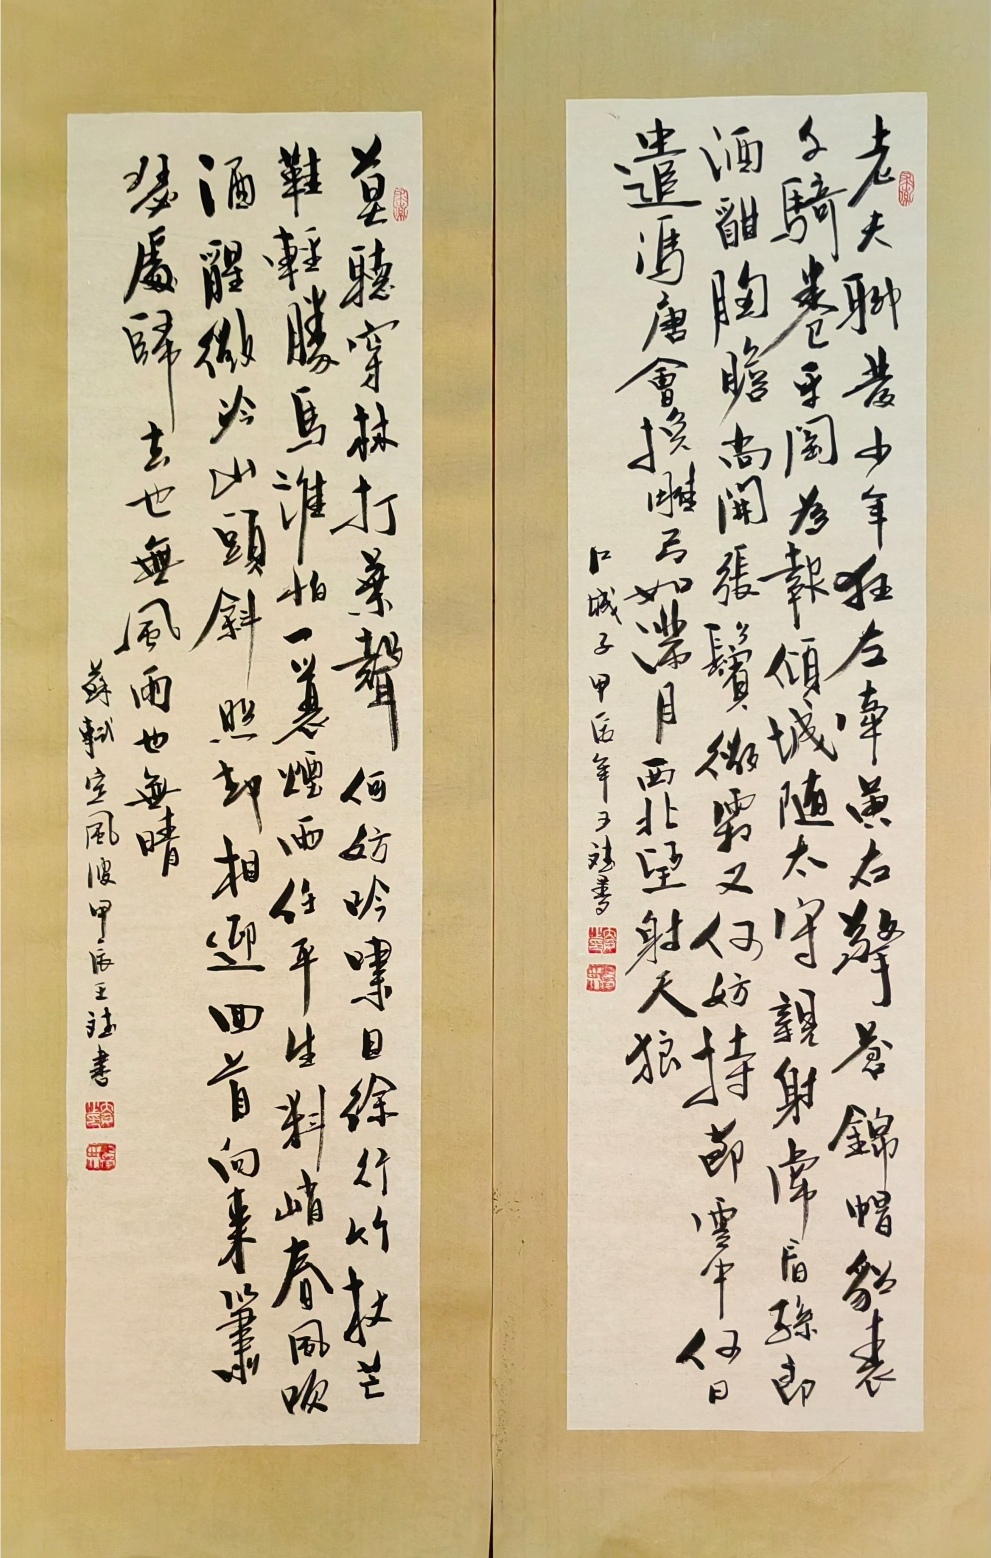 老夫聊發少年狂左牽黃右擎蒼錦帽貂裘
千騎卷平岡為報傾城随太守親射虎看孫郎
酒酣胸膽尚開張鬢微霜又何妨持節雲中何日
遣馮唐會挽雕弓如滿月西北望射天狼
江城子甲辰年王書
莫聽穿林打葉聲何妨吟嘯且徐行竹杖芒
鞋輕勝馬誰怕一蓑煙雨任平生料峭春風吹
酒醒微冷山頭斜照却相迎回首向來簫
瑟處歸去也無風雨也無晴
蘇軾定風波甲辰王書